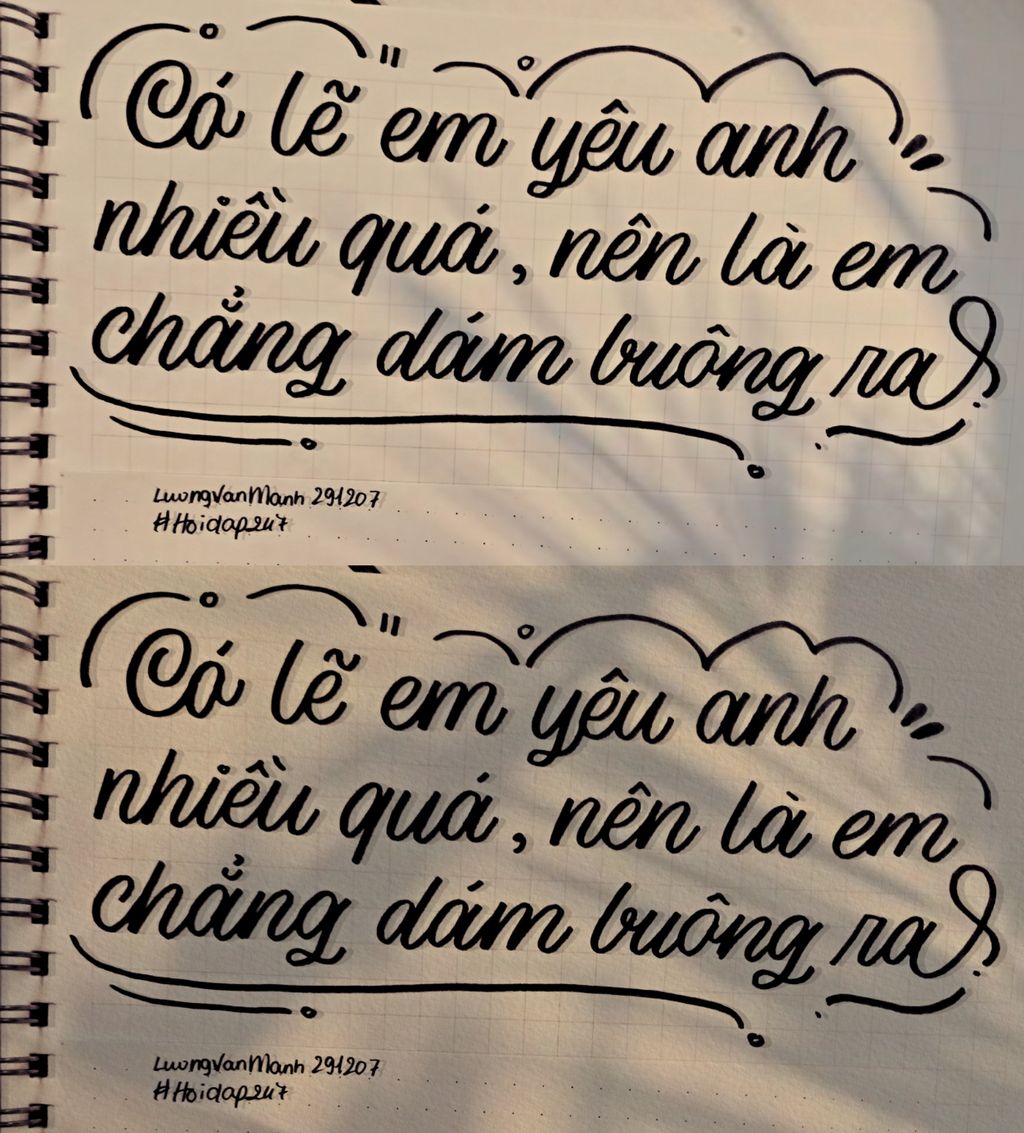 Có lẽ em yêu anh
nhiều quá, nên là em
chẳng dám buông ra
LuongVanManh 291207
#Hoidap247
Có lẽ em yêu anh
nhiều quá, nên là em
chẳng dám buông ra
LuongVanManh 291207
#Hoidap247